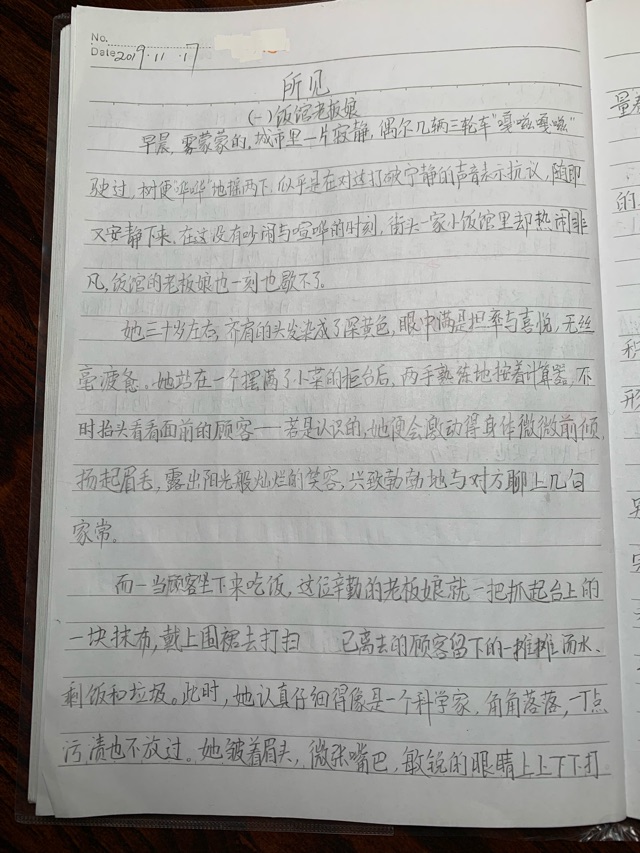 No.
Date 2019.11.17
所见
(一)饭馆老板娘
早晨,雾蒙蒙的,城市里一片寂静,偶尔几辆三轮车"嘎嗞嘎嗞"
驶过,树便"哗哗"地摇两下,似乎是在对这打破宁静的声音表示抗议,随即
又安静下来。在这没有吵闹与喧哗的时刻,街头一家小饭馆里却热闹非
凡,饭馆的老板娘也一刻也歇不了。
她三十岁左右,齐肩的头发染成了深黄色,眼中满是坦率与喜悦,无丝
毫疲惫。她站在一个摆满了小菜的柜台后,两手熟练地按着计算器,不
时抬头看看面前的顾客——若是认识的,她便会激动得身体微微前倾,
扬起眉毛,露出阳光般灿烂的笑容,兴致勃勃地与对方聊上几句
家常。
而一当顾客坐下来吃饭,这位辛勤的老板娘就一把抓起台上的
一块抹布,戴上围裙去打扫 已离去的顾客留下的一摊摊汤水、
剩饭和垃圾。此时,她认真仔细得像是一个科学家,角角落落,一丁点
污渍也不放过。她皱着眉头,微张嘴巴,敏锐的眼睛上上下下打
量着
的
积
形